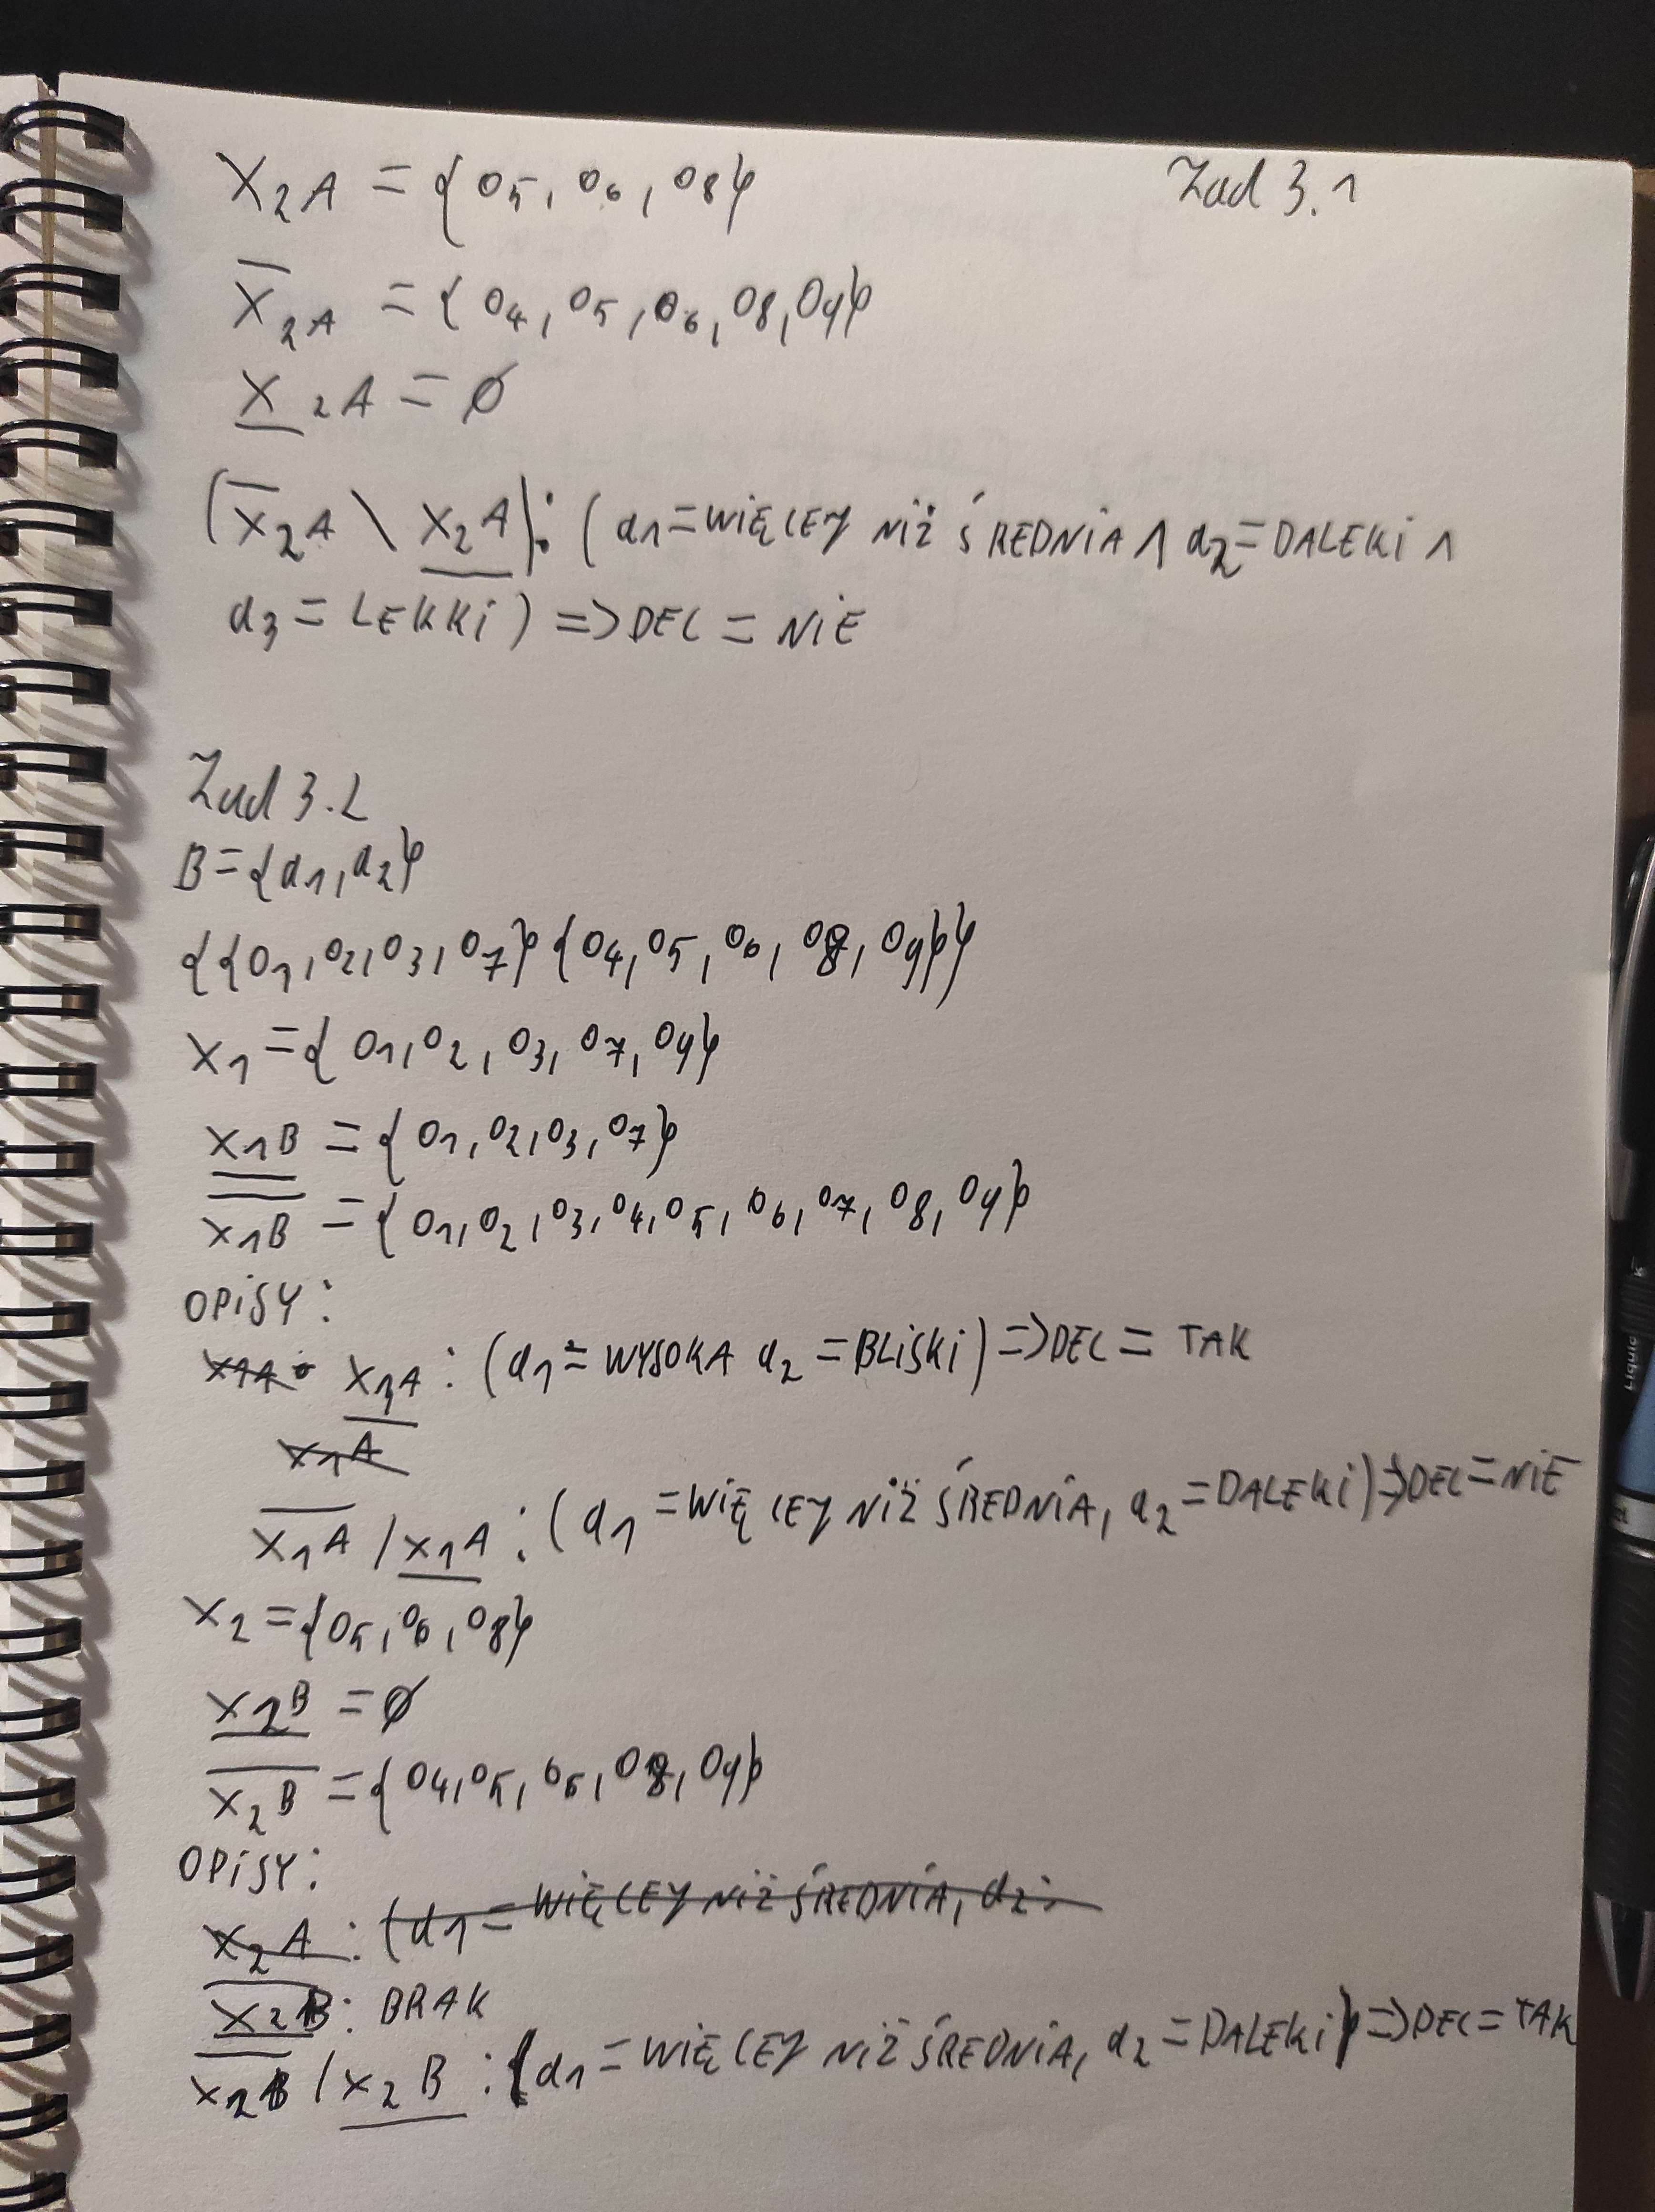 Zad 3.1
X₂A = {O5, O6, O8}
X̅₂A = {O4, O5, O6, O8, O9}
X̲₂A = ∅
(X̅₂A \ X̲₂A): (a1 = WIĘCEJ NIŻ ŚREDNIA ∧ a2 = DALEKI ∧
a3 = LEKKI) => DEC = NIE
Zad 3.2
B = {a1, a2}
{{O1, O2, O3, O7} {O4, O5, O6, O8, O9}}
X1 = {O1, O2, O3, O7, O9}
X̲1B = {O1, O2, O3, O7}
X̅1B = {O1, O2, O3, O4, O5, O6, O7, O8, O9}
OPISY:
X1A X̲1A: (a1 = WYSOKA a2 = BLISKI) => DEC = TAK
X1A
X̅1A / X̲1A: (a1 = WIĘCEJ NIŻ ŚREDNIA, a2 = DALEKI) => DEC = NIE
X2 = {O5, O6, O8}
X̲2B = ∅
X̅2B = {O4, O5, O6, O8, O9}
OPISY:
X2A: (a1 = WIĘCEJ NIŻ ŚREDNIA, a2 =
X̲2B: BRAK
X̅2B / X̲2B: (a1 = WIĘCEJ NIŻ ŚREDNIA, a2 = DALEKI) => DEC = TAK